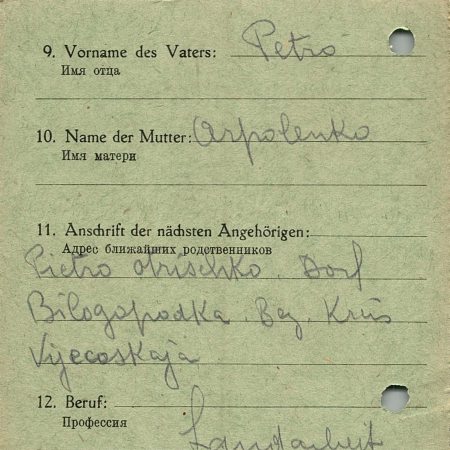 9. Vorname des Vaters: Petro
Имя отца
10. Name der Mutter: Arpolenko
Имя матери
11. Anschrift der nächsten Angehörigen:
Адрес ближайших родственников
Pietro Dorf
Bilogopodka. Bez. Kreis
Vijecoskaja
12. Beruf:
Профессия
Landarbeit